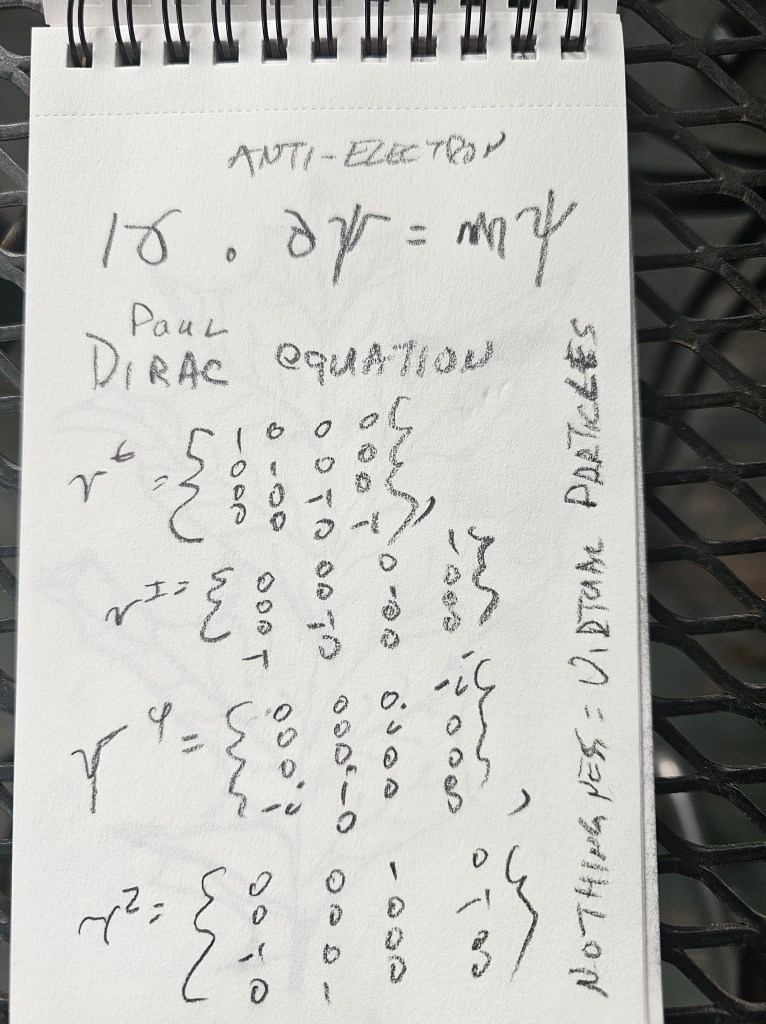 ANTI-ELECTRON
iγ . ∂ψ = mψ
Paul
DIRAC equATION
γ⁶ = { 1 0 0 0 }
0 1 0 0
0 0 -1 0
0 0 0 -1 ,
γᴵ = { 0 0 0 1 }
0 0 1 0
0 -1 0 0
-1 0 0 0
γ⁴ = { 0 0 0 -i }
0 0 i 0
0 i 0 0
-i 0 0 0 ,
γ² = { 0 0 1 0 }
0 0 0 -1
-1 0 0 0
0 1 0 0
NOTHINGNESS = VIRTUAL PARTICLES